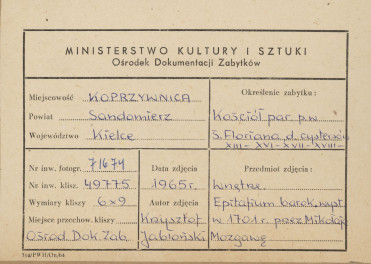 MINISTERSTWO KULTURY I SZTUKI
Ośrodek Dokumentacji Zabytków
Miejscowość KOPRZYWNICA
Powiat Sandomierz
Województwo Kielce
Określenie zabytku:
Kościół par. p.w.
S. Floriana, d. cystersów
XIII - XVI - XVII - XVIII
Nr inw. fotogr. 71674
Nr inw. klisz. 49775
Wymiary kliszy 6x9
Miejsce przechow. kliszy
Ośrod. Dok. Zab.
Data zdjęcia
1965 r.
Autor zdjęcia
Krzysztof
Jabłoński
Przedmiot zdjęcia:
Wnętrze.
Epitafium barok. wyst.
w 1701 r. przez Mikołaja
Mozgawę